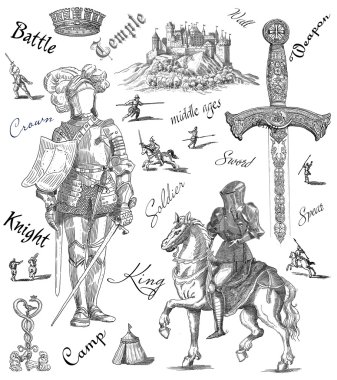 Battle
Temple
Wall
Weapon
Crown
middle ages
Sword
Soldier
Spear
Knight
King
Camp